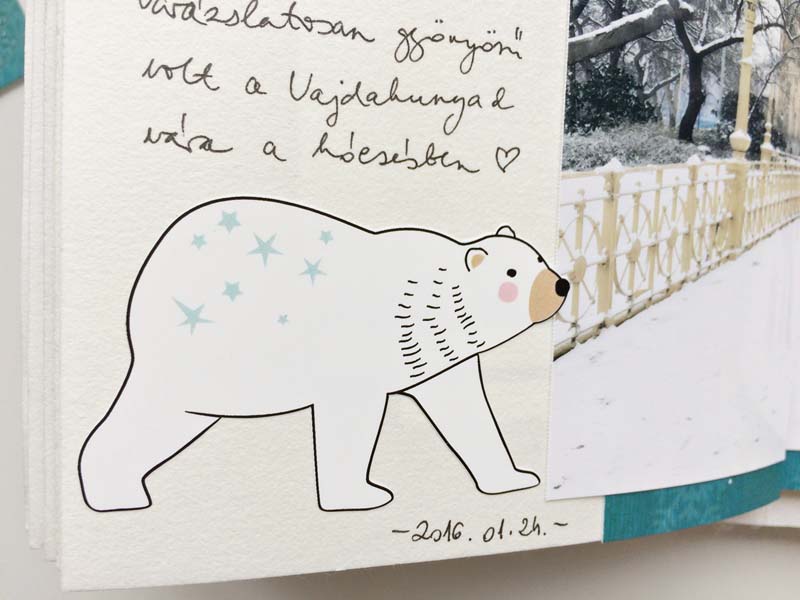 varázslatosan gyönyörű
volt a Vajdahunyad
vára a hóesésben ♡
-2016.01.24.-